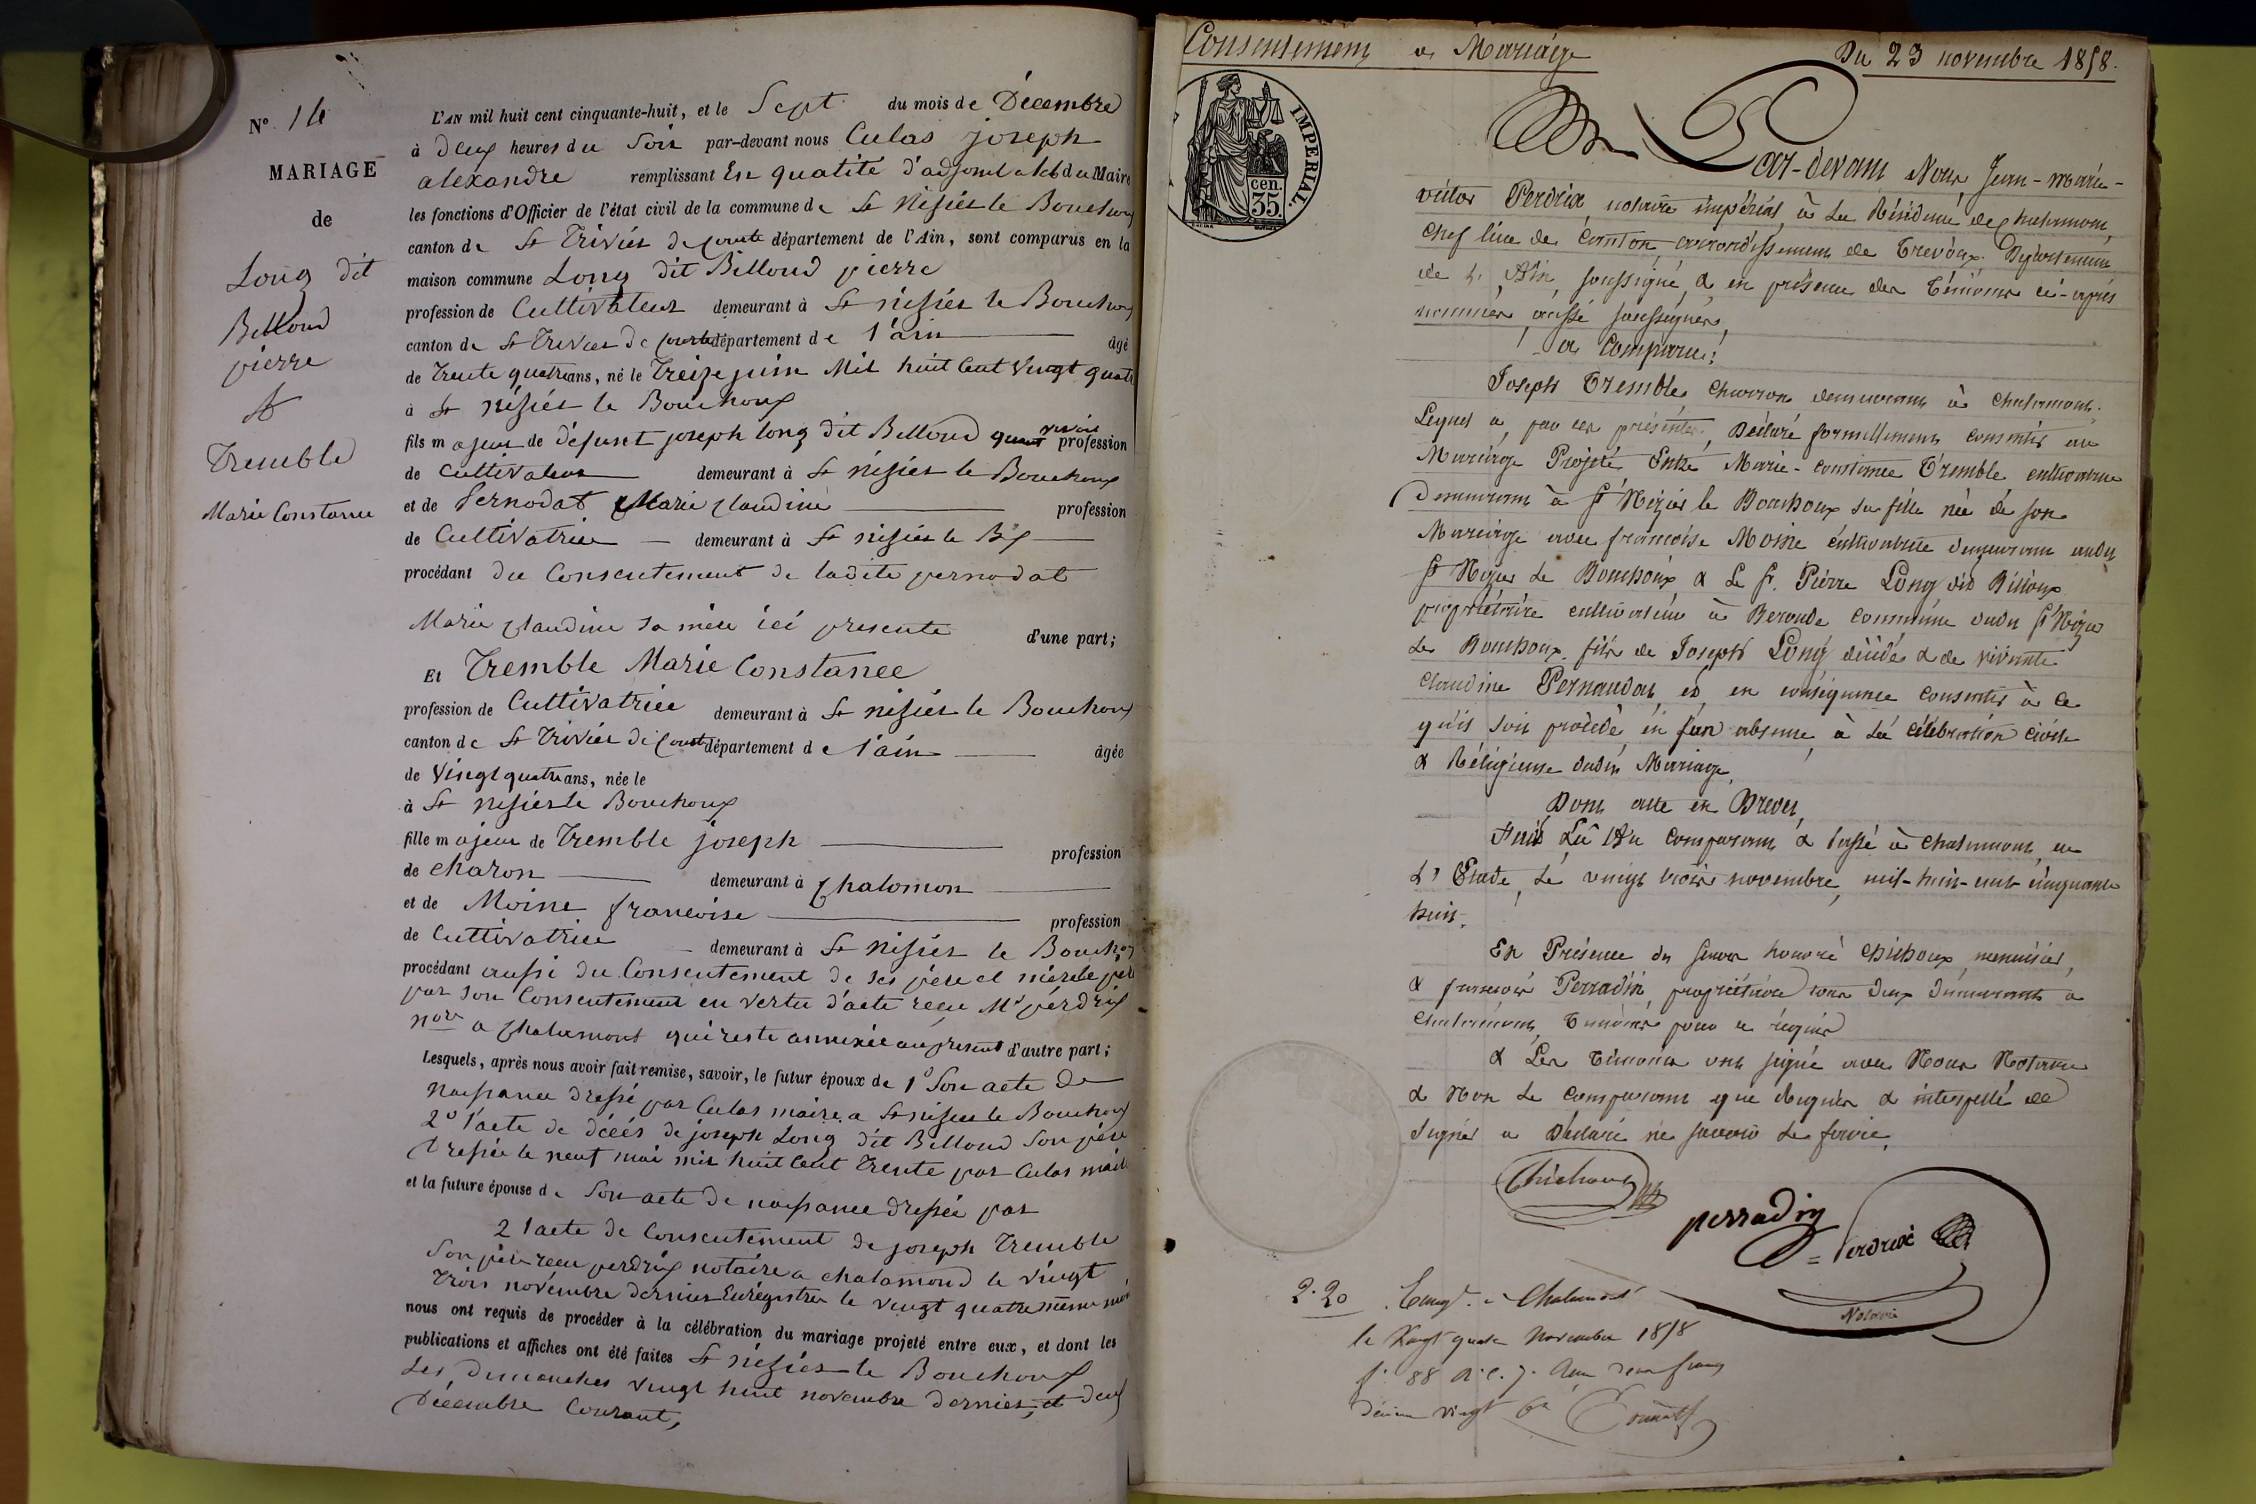 N° 14
MARIAGE
de
Long dit
Billoud
pierre
&
Tremble
Marie Constance
L'AN mil huit cent cinquante-huit, et le Sept du mois de Décembre
à deux heures du Soir par-devant nous Culas joseph
alexandre remplissant En qualité d'adjoint du Maire
les fonctions d'Officier de l'état civil de la commune de St Nisier le Bouchoux
canton de St Trivier de Courte département de l'Ain, sont comparus en la
maison commune Long dit Billoud pierre
profession de Cultivateur demeurant à St nisier le Bouchoux
canton de St Trivier de Courte département de l'ain âgé
de Trente quatre ans, né le Treize juin Mil huit Cent Vingt quatre
à St nisier le Bouchoux
fils majeur de défunt joseph long dit Billoud quant vivait profession
de Cultivateur demeurant à St nisier le Bouchoux
et de Pernodat Marie Claudine profession
de Cultivatrice demeurant à St nisier le Bx
procédant du Consentement de ladite pernodat
Marie Claudine sa mère ici presente d'une part;
Et Tremble Marie Constance
profession de Cultivatrice demeurant à St nisier le Bouchoux
canton de St Trivier de Courte département de l'ain âgée
de Vingt quatre ans, née le
à St nisier le Bouchoux
fille majeur de Tremble joseph profession
de charon demeurant à Chalomon
et de Moine francoise profession
de Cultivatrice demeurant à St Nisier le Bouchoux
procédant aussi du Consentement de ses père et mère le père
par son Consentement en vertu d'acte reçu Me pérdrix
nore a Chalamont qui reste annexée au présent d'autre part;
Lesquels, après nous avoir fait remise, savoir, le futur époux de 1° Son acte de
naissance dressé par Culas maire a St nisier le Bouchoux
2° l'acte de décés de joseph Long dit Billoud Son père
dressée le neuf mai mil huit Cent Trente par Culas maire
et la future épouse de Son acte de naissance dressée par
2 l'acte de Consentement de joseph Tremble
Son père recu perdrix notaire a chalamond le vingt
Trois novembre dernier Enrégistrer le vingt quatre même mois
nous ont requis de procéder à la célébration du mariage projeté entre eux, et dont les
publications et affiches ont été faites St nisier le Bouchoux
Les, dimanches vingt huit novembre dernier, et
Décembre Courant,
Consentement a Mariage Du 23 novembre 1858.
IMPERIAL.
cen.
35.
Par-devant Nous Jean-Marie-
victor Perdrix, notaire impérial à la Résidence de Chalamont,
Chef lieu de Canton arrondissement de Trevoux Département
de l'Ain, soussigné, & en présence des Témoins ci-après
nommés aussi soussignés,
a Comparu:
Joseph Tremble charron demeurant à Chalamont.
Lequel a, par ces présentes, Déclaré formellement consentir au
Mariage Projeté Entre Marie-constance Tremble cultivatrice
demeurant à St Nizier le Bouchoux sa fille née de son
Mariage avec françoise Moine cultivatrice demeurant audit
St Nizier le Bouchoux & Le Sr. Pierre Long dit Billoux
propriétaire cultivateur à Beronde commune dudit St Nizier
le Bouchoux, fils de Joseph Long décédé & de vivante
Claudine Pernaudat, et en conséquence consentir à ce
qu'il soit procédé en son absence à la célébration civile
& Réligieuse dudit Mariage.
Dont acte en Brevet,
Fait Lû au comparant & Passé à Chalamont, en
L'Etude, Le vingt trois novembre, mil-huit-cent cinquante
huit.
En Présence de honoré Chichoux, menuisier,
& françois Perradin, propriétaire tous deux demeurants à
Chalamont, Témoins pour ce requis
& Les Témoins ont signé avec Nous Notaire
& Non Le Comparant que Requis & interpellé de
signer a Déclaré ne savoir le faire.
Chichoux
perradin
Perdrix
Notaire
2.20
Enregt. à Chalamont
le Vingt quatre Novembre 1858
f. 88 Reçu deux francs
décime vingt